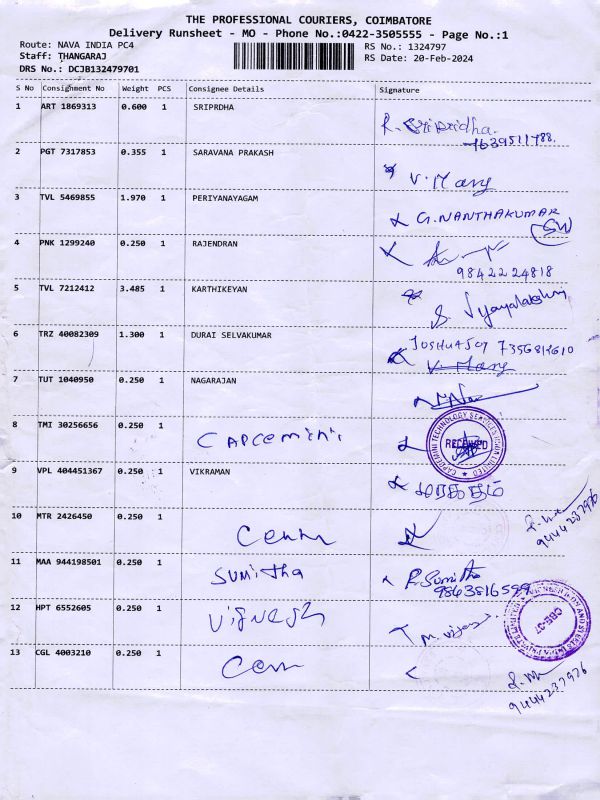 THE PROFESSIONAL COURIERS, COIMBATORE
Delivery Runsheet - MO - Phone No.:0422-3505555 - Page No.:1
Route: NAVA INDIA PC4 RS No.: 1324797
Staff: THANGARAJ RS Date: 20-Feb-2024
DRS No.: DCJB132479701
S No Consignment No Weight PCS Consignee Details Signature
1 ART 1869313 0.600 1 SRIPRDHA
R. Sripridha.
2 PGT 7317853 0.355 1 SARAVANA PRAKASH
V. Many
3 TVL 5469855 1.970 1 PERIYANAYAGAM
G. NANTHAKUMAR
SW
4 PNK 1299240 0.250 1 RAJENDRAN
9842224818
5 TVL 7212412 3.485 1 KARTHIKEYAN
S. Vijayalakshmi
6 TRZ 40082309 1.300 1 DURAI SELVAKUMAR
V. Many
7 TUT 1040950 0.250 1 NAGARAJAN
8 TMI 30256656 0.250 1 CAPGEMINI
CAPGEMINI TECHNOLOGY SERVICES INDIA LIMITED
RECEIVED
9 VPL 404451367 0.250 1 VIKRAMAN
மரகதம்
10 MTR 2426450 0.250 1
9444237976
11 MAA 944198501 0.250 1 SUMitha R. Sumitha
9863816599
12 HPT 6552605 0.250 1 Vignesh
CBE-37
13 CGL 4003210 0.250 1
9444237976